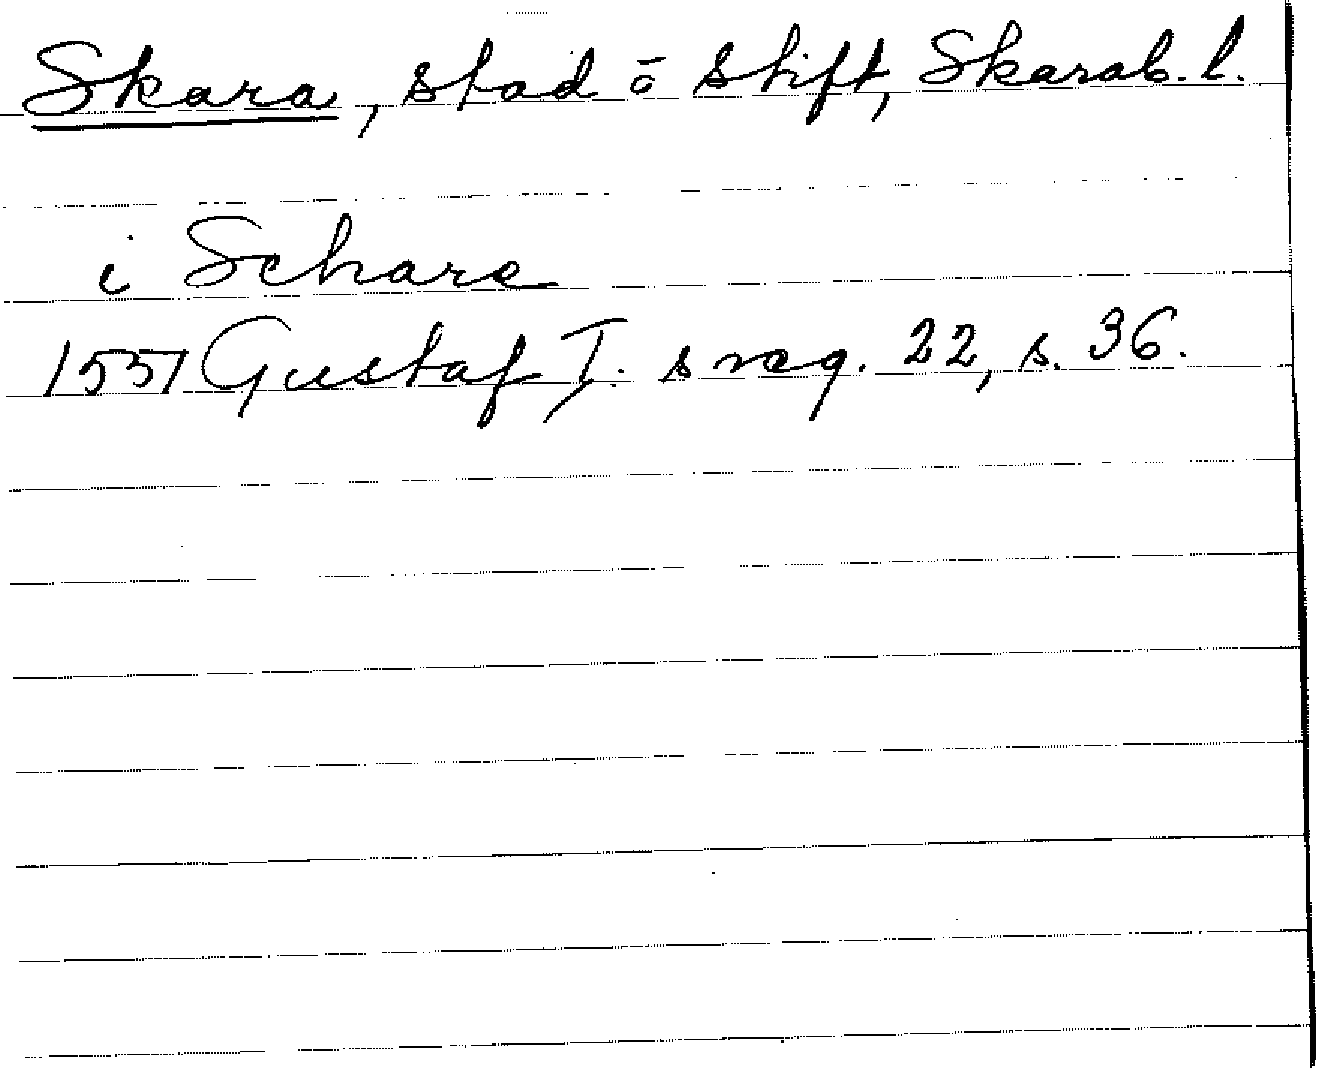 Skara, stad ō stift, Skarab. l.
i Schare
1551 Gustaf I. s reg. 22, s. 36.